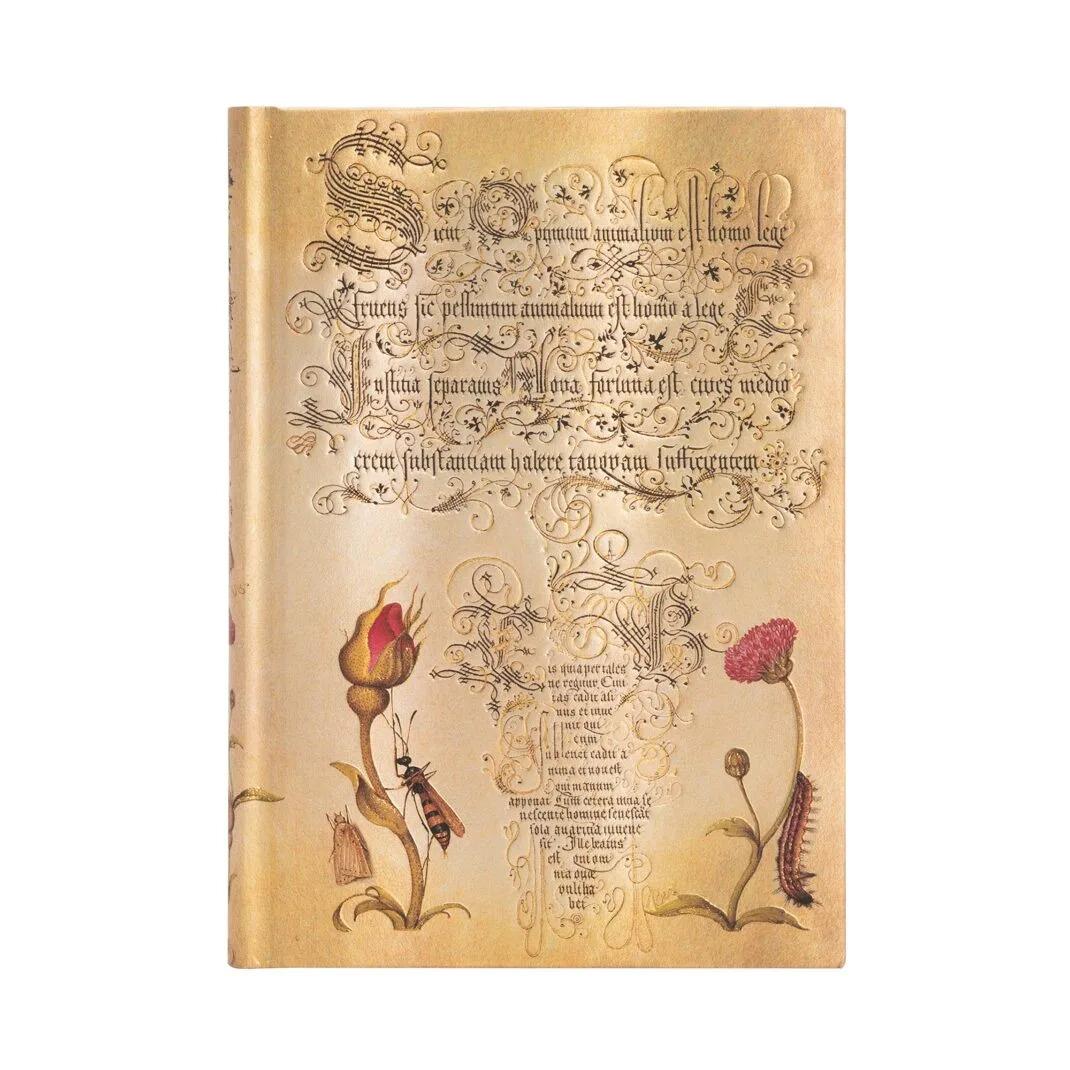 Sicut Optimum animalium est homo lege
fruens sic pessimum animalium est homo a lege
Iustitia separatus Nova fortuna est cives medio
crem substantiam habere tanquam sufficientem
is quia per tales
ne regitur Civi
tas cadit asi
nus et inve
nit qui
eum
sublevet cadit a
nima et non est
qui manum
apponat Cum cetera vitia se
nescente homine senescat
sola avaritia iuvene
scit. Ille beatus
est qui om
nia que
vult ha
bet